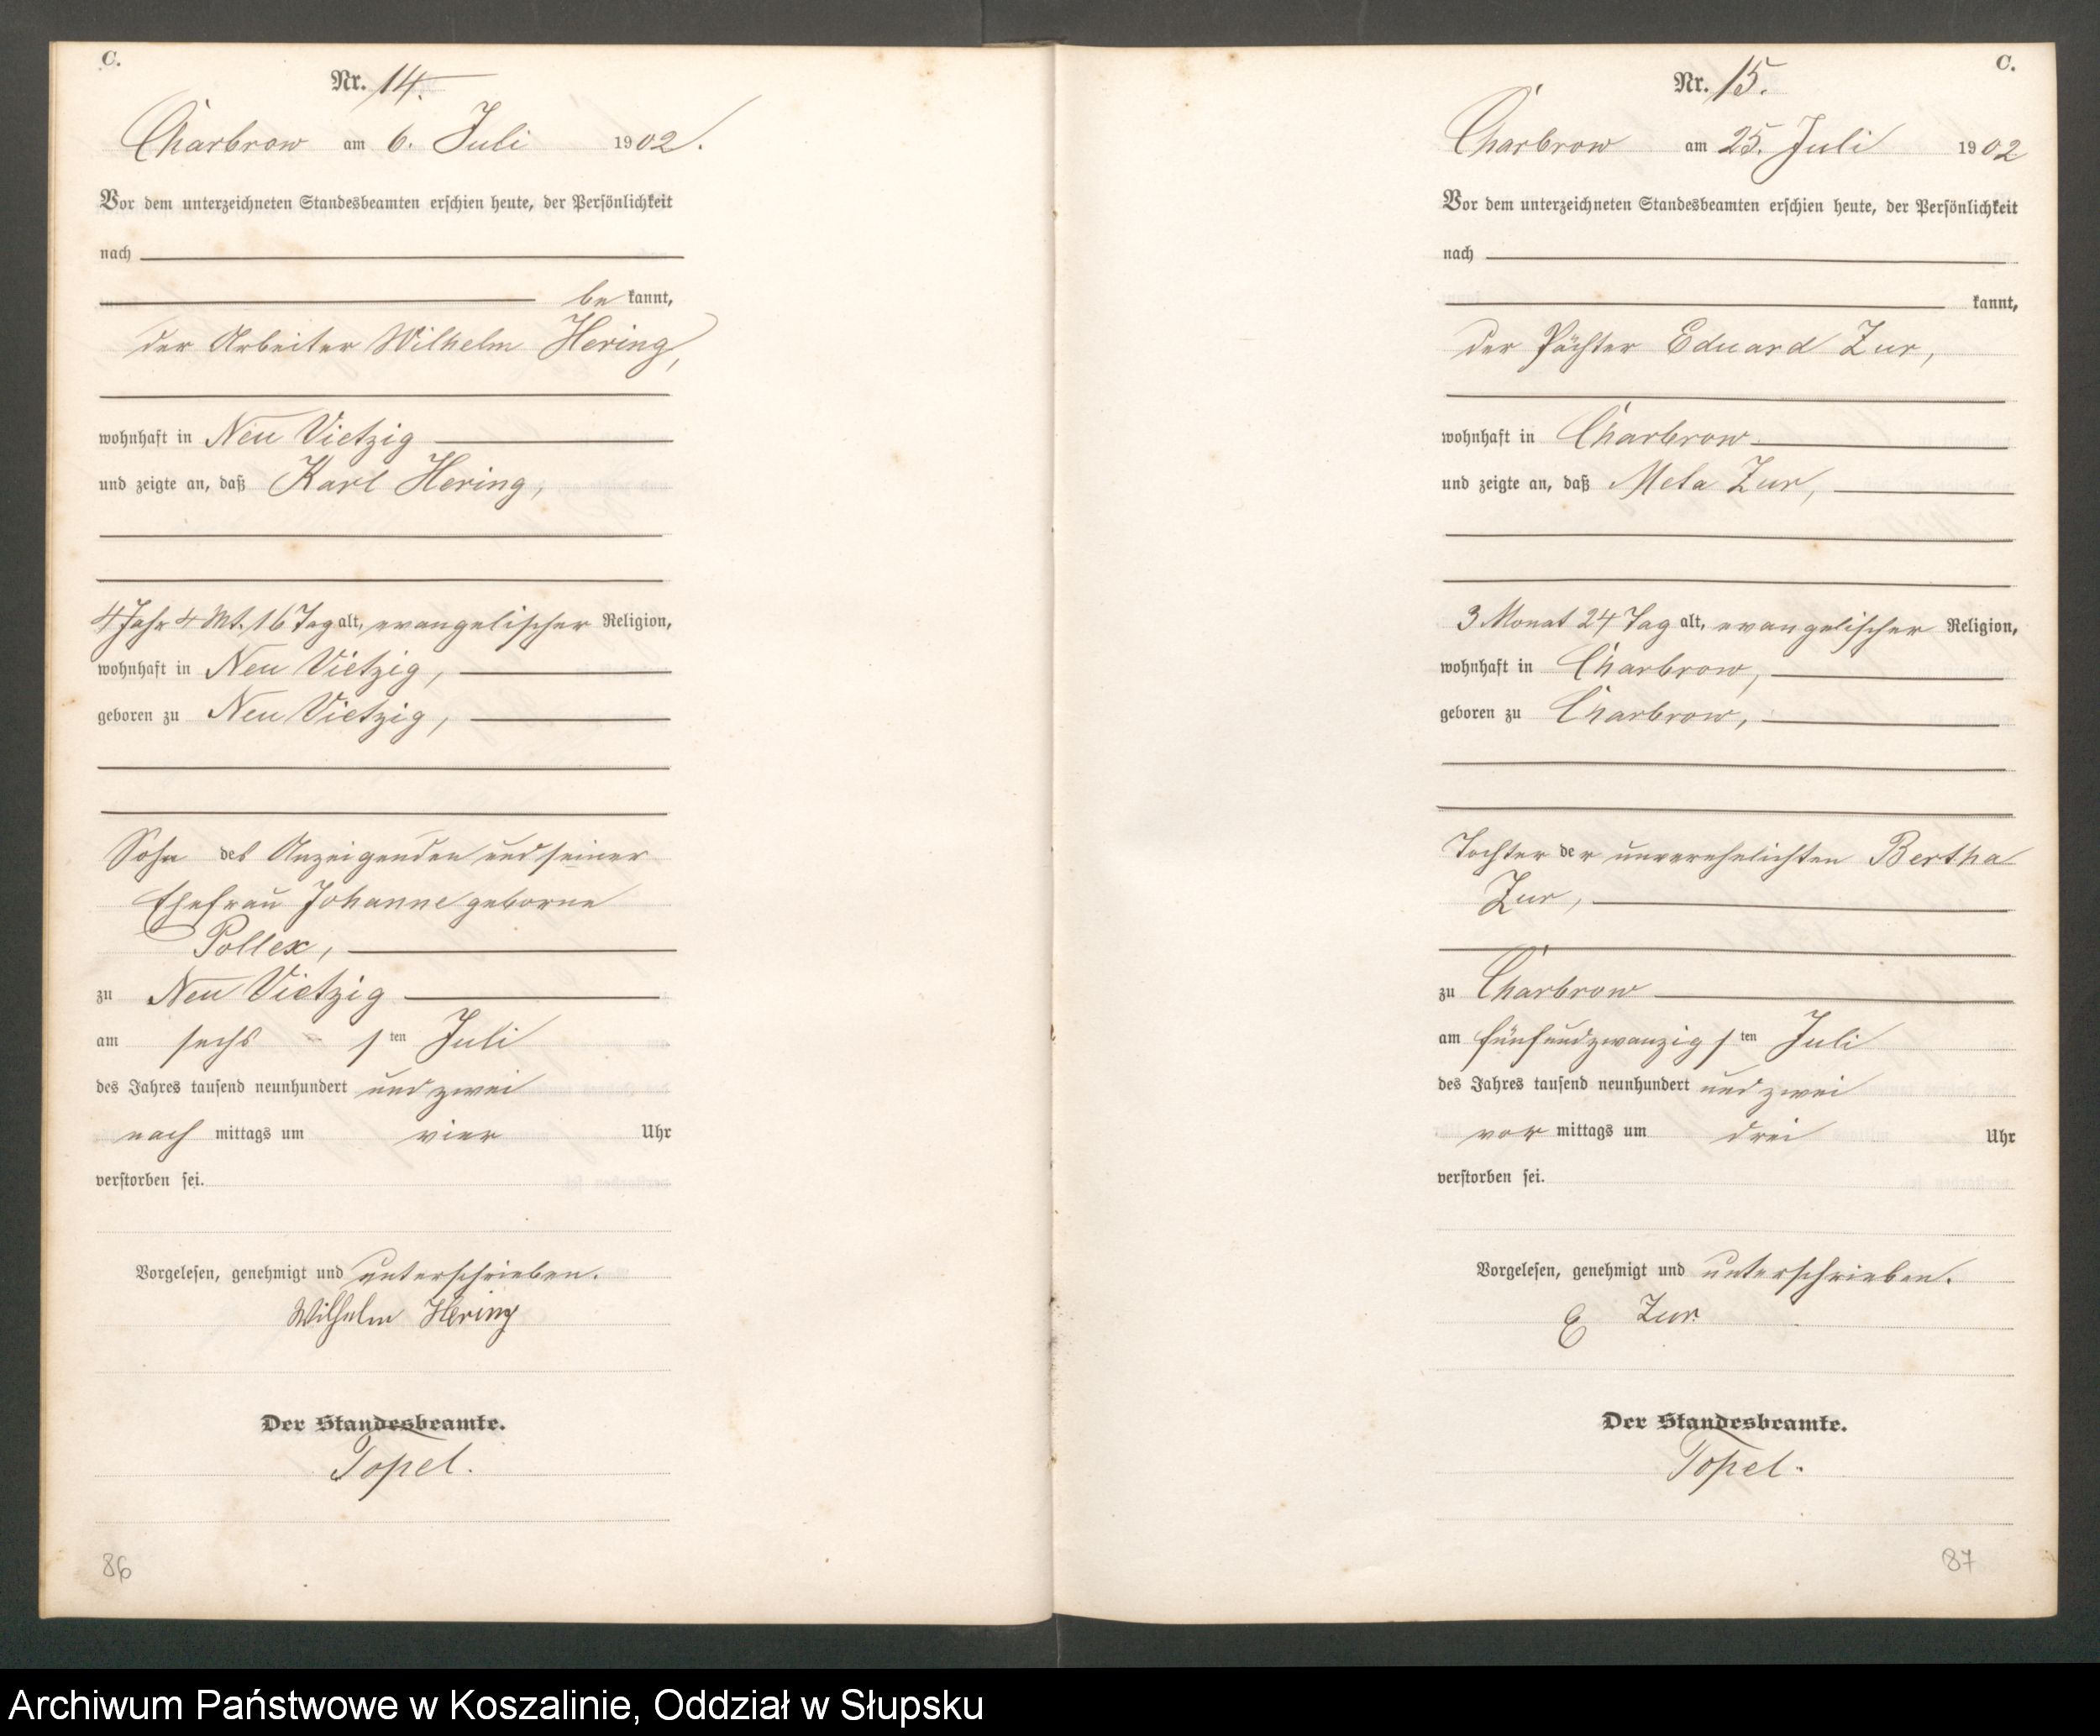 C.
Nr. 14.
Charbrow am 6. Juli 1902.
Vor dem unterzeichneten Standesbeamten erschien heute, der Persönlichkeit
nach
be kannt,
der Arbeiter Wilhelm Hering,
wohnhaft in Neu Vietzig
und zeigte an, daß Karl Hering,
4 Jahr 4 Mt. 16 Tag alt, evangelischer Religion,
wohnhaft in Neu Vietzig,
geboren zu Neu Vietzig,
Sohn des Anzeigenden und seiner
Ehefrau Johanne geborne
Pollex,
zu Neu Vietzig
am sechs sten Juli
des Jahres tausend neunhundert und zwei
nach mittags um vier Uhr
verstorben sei.
Vorgelesen, genehmigt und unterschrieben.
Wilhelm Hering
Der Standesbeamte.
Topel.
86
C.
Nr. 15.
Charbrow am 25. Juli 1902
Vor dem unterzeichneten Standesbeamten erschien heute, der Persönlichkeit
nach
kannt,
der Pächter Eduard Zur,
wohnhaft in Charbrow
und zeigte an, daß Meta Zur,
3 Monat 24 Tag alt, evangelischer Religion,
wohnhaft in Charbrow,
geboren zu Charbrow,
Tochter der unverehelichten Bertha
Zur,
zu Charbrow
am fünfundzwanzig sten Juli
des Jahres tausend neunhundert und zwei
vor mittags um drei Uhr
verstorben sei.
Vorgelesen, genehmigt und unterschrieben.
E Zur.
Der Standesbeamte.
Topel.
87
Archiwum Państwowe w Koszalinie, Oddział w Słupsku